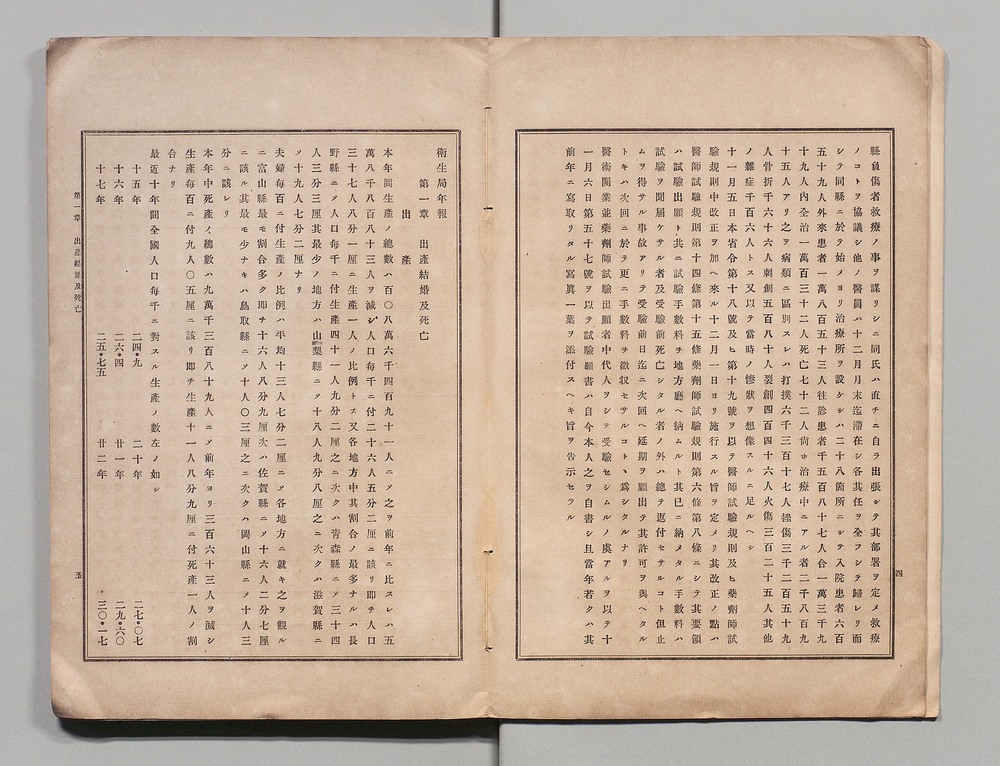 縣負傷者救療ノ事ヲ謀リシニ同氏ハ直チニ自ラ出張シテ其部署ヲ定メ救療
ノコトヲ協議シ他ノ醫員ハ十二月月末迄滯在シ各其任ヲ全フシテ歸レリ而
シテ同縣ニ於テ始メヨリ治療所ヲ設ケシハ二十八箇所ニシテ入院患者六百
五十九人外來患者一萬八百五十三人往診患者千五百八十七人合一萬三千九
十九人內全治一萬百三十二人死亡七十二人尙ホ治療中ニアル者二千八百九
十五人アリ之ヲ病類ニ區別スレハ打撲六千三百十七人挫傷三千二百五十九
人骨折千六十六人刺創五百八十人裂創四百四十六人火傷三百二十五人其他
ノ雜症千百六人トス又以テ當時ノ慘狀ヲ想像スルニ足ルヘシ
十一月五日本省令第十八號及ヒ第十九號ヲ以テ醫師試驗規則及ヒ藥劑師試
驗規則中改正ヲ加ヘ來ル十二月一日ヨリ施行スル旨ヲ定メリ其改正ノ點ハ
醫師試驗規則第十四條第十五條藥劑師試驗規則第六條第八條ニシテ其要領
ハ試驗出願ト共ニ試驗手數料ヲ地方廳ヘ納ムルト其已ニ納メタル手數料ハ
試驗ヲ聞屆ケサル者及受驗前死亡シタル者ノ外ハ總テ返付セサルコト但止
ムヲ得サル事故アリテ受驗前日迄ニ次回ヘ延期ヲ願出テ其許可ヲ與ヘタル
トキハ次回ニ於テ更ニ手數料ヲ徵収セサルコトヽ爲シタルナリ
醫術開業並藥劑師試驗出願者中代人ヲシテ受驗セシムルノ虞アルヲ以テ十
一月六日第五十七號ヲ以テ試驗願書ハ自今本人之ヲ自書シ且當年若クハ其
前年ニ寫取リタル寫眞一葉ヲ添付スヘキ旨ヲ告示セラル
四
衛生局年報
第一章 出產結婚及死亡
出產
本年間生產ノ總數ハ百〇八萬六千四百九十一人ニメ之ヲ前年ニ比スレハ五
萬八千八百八十三人ヲ減シ人口每千ニ付二十六人五分二厘ニ該リ即チ人口
三十七人八分一厘ニ生產一人ノ比例トス又各地方中其割合ノ最多ナルハ長
野縣ニメ人口每千ニ付生產四十一人九分二厘之ニ次クハ靑森縣ニメ三十四
人三分三厘其最少ノ地方ハ山梨縣ニメ十八人九分八厘之ニ次クハ滋賀縣ニ
メ十九人七分二厘ナリ
夫婦每百ニ付生產ノ比例ハ平均十三人七分二厘ニメ各地方ニ就キ之ヲ觀ル
ニ富山縣最モ割合多ク即チ十六人八分九厘次ハ佐賀縣ニメ十六人二分七厘
ニ該ル其最モ少ナキハ鳥取縣ニメ十人〇三厘之ニ次クハ岡山縣ニメ十人三
分ニ該レリ
本年中死產ノ總數ハ九萬千三百八十九人ニメ前年ヨリ三百六十三人ヲ減シ
生產每百ニ付九人〇五厘ニ該リ即チ生產十一人八分九厘ニ付死產一人ノ割
合ナリ
最近十年間全國人口每千ニ對スル生產ノ數左ノ如シ
十五年 二四・九 二十年 二七・〇七
十六年 二六・四 廿一年 二九・六〇
十七年 二五・七五 廿二年 三〇・一七
第一章 出產結婚及死亡
五